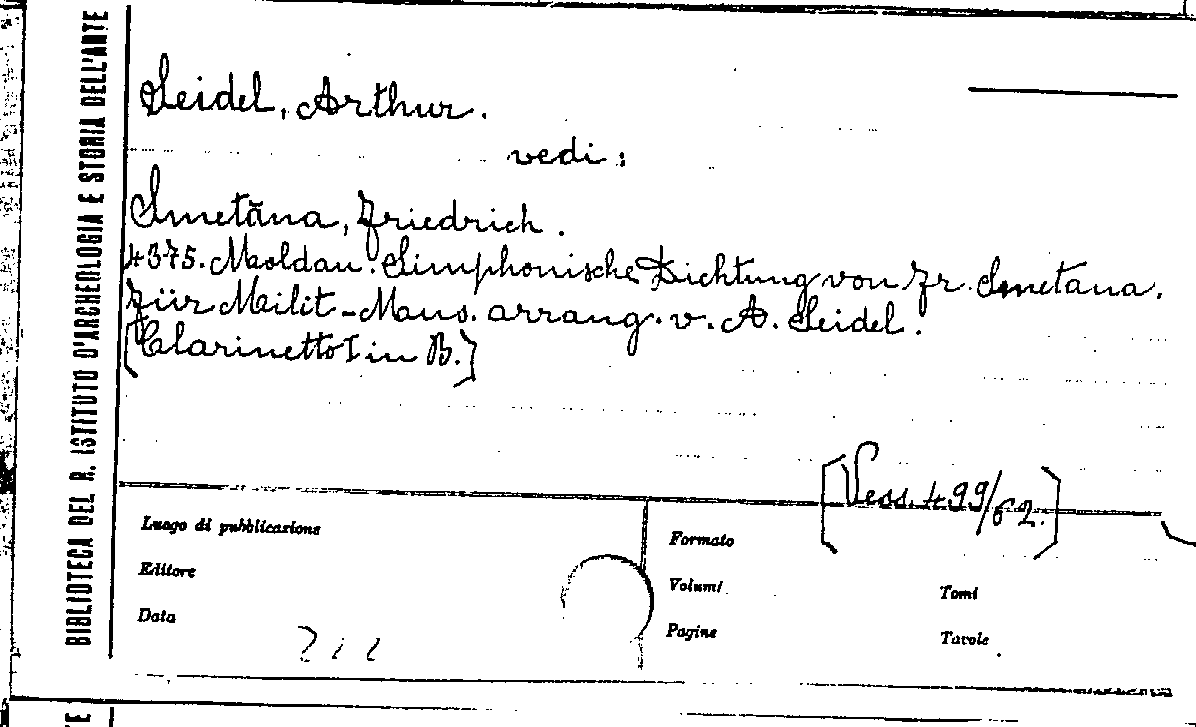 BIBLIOTECA DEL R. ISTITUTO D'ARCHEOLOGIA E STORIA DELL'ARTE
Seidel, Arthur.
vedi:
Smetāna, Friedrich.
4375. Moldau. Simphonische Dichtung von Fr. Smetana.
Für Milit-Mous. arrang. v. A. Seidel.
[Clarinetto I in B.]
[Vess. 499/62.]
Luogo di pubblicazione
Formato
Editore
Volumi
Tomi
Data
Pagine
Tavole